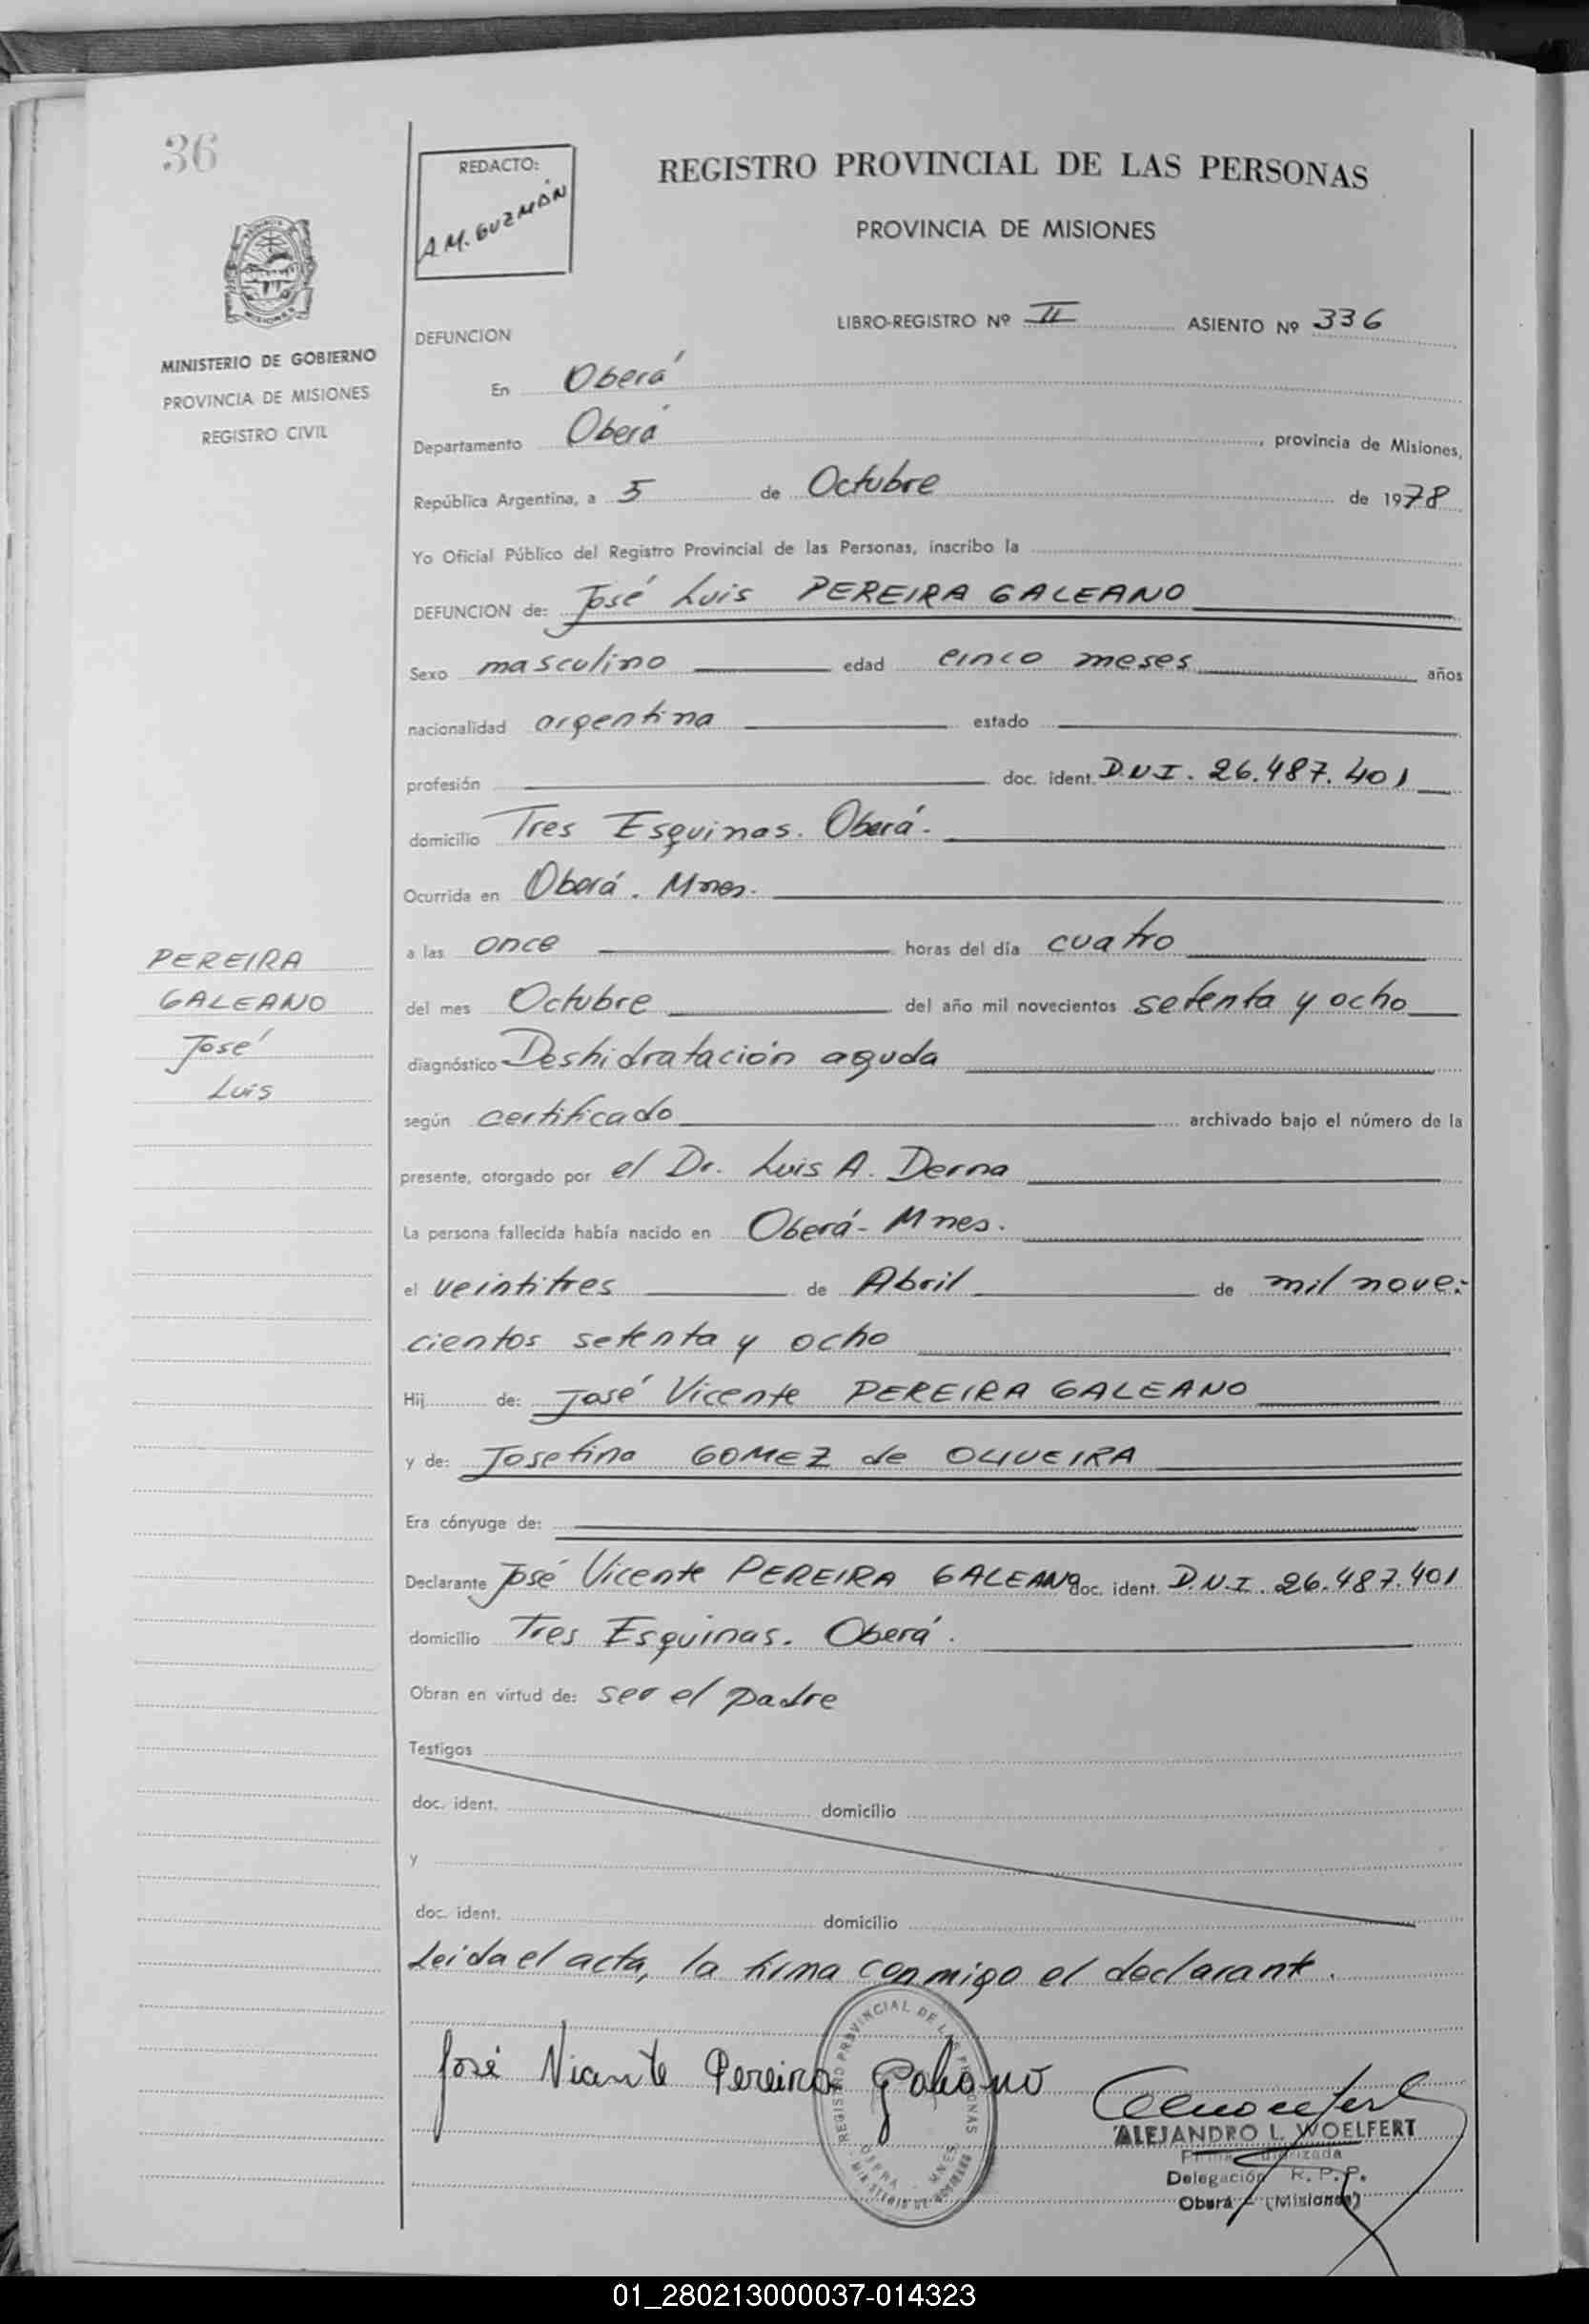 36
REDACTO:
A M. GUZMÁN
REGISTRO PROVINCIAL DE LAS PERSONAS
PROVINCIA DE MISIONES
MINISTERIO DE GOBIERNO
PROVINCIA DE MISIONES
REGISTRO CIVIL
LIBRO-REGISTRO Nº II ASIENTO Nº 336
DEFUNCION
En Oberá
Departamento Oberá, provincia de Misiones,
República Argentina, a 5 de Octubre de 1978
Yo Oficial Público del Registro Provincial de las Personas, inscribo la
DEFUNCION de: José Luis PEREIRA GALEANO
Sexo masculino edad cinco meses años
nacionalidad argentina estado
profesión doc. ident. D.N.I. 26.487.401
domicilio Tres Esquinas. Oberá.
Ocurrida en Oberá. Mnes.
a las once horas del día cuatro
del mes Octubre del año mil novecientos setenta y ocho
diagnóstico Deshidratación aguda
según certificado archivado bajo el número de la
presente, otorgado por el Dr. Luis A. Derna
La persona fallecida había nacido en Oberá - Mnes.
el veintitres de Abril de mil nove-
cientos setenta y ocho
Hij de: José Vicente PEREIRA GALEANO
y de: Josefina GOMEZ de OLIVEIRA
Era cónyuge de:
Declarante José Vicente PEREIRA GALEANO doc. ident. D.N.I. 26.487.401
domicilio Tres Esquinas. Oberá.
Obran en virtud de: ser el padre
Testigos
doc. ident. domicilio
y
doc. ident. domicilio
Leida el acta, la firma conmigo el declarante.
José Vicente Pereira Galeano
PEREIRA
GALEANO
José
Luis
REGISTRO PROVINCIAL DE LAS PERSONAS
OBERA - MNES
MINISTERIO DE GOBIERNO
ALEJANDRO L. WOELFERT
Firma Autorizada
Delegación R. P. P.
Oberá - (Misiones)
01_280213000037-014323